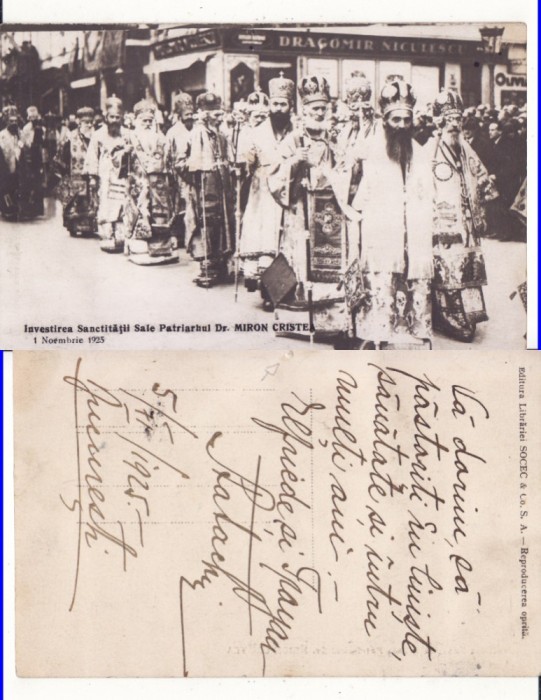 DRAGOMIR NICULESCU
Investirea Sanctităţii Sale Patriarhul Dr. MIRON CRISTEA
1 Noembrie 1925
Editura Librăriei SOCEC & Co. S. A. — Reproducerea oprită.
Vă dorim, să
păstoriti în linişte,
sănătate şi întru
mulţi ani!
Elfriede şi
5/XI/1925.
Bucureşti